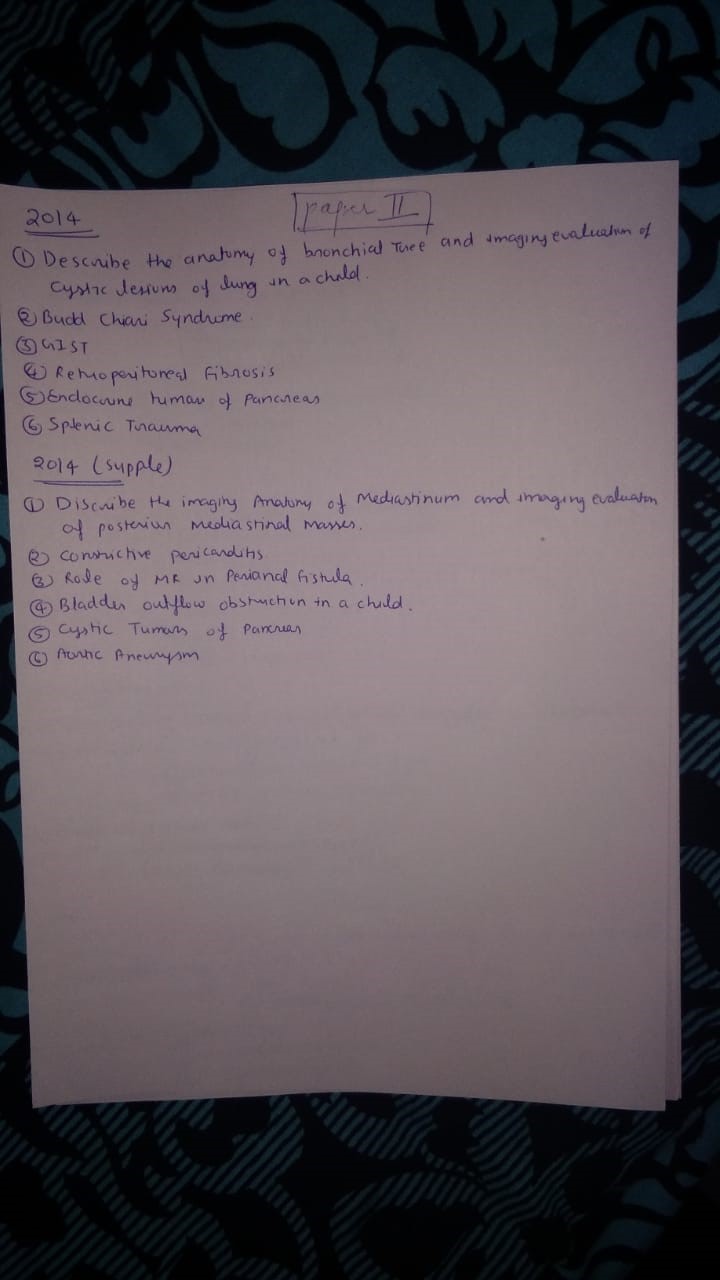 2014
paper II
① Describe the anatomy of bronchial Tree and imaging evaluation of
cystic lesions of lung in a child.
② Budd Chiari Syndrome.
③ GIST
④ Retroperitoneal Fibrosis
⑤ Endocrine tumors of Pancreas
⑥ Splenic Trauma
2014 (supple)
① Discribe the imaging Anatomy of Mediastinum and imaging evaluation
of posterior Mediastinal Masses.
② Constrictive pericarditis
③ Role of MR in Perianal fistula.
④ Bladder outflow obstruction in a child.
⑤ Cystic Tumors of Pancreas
⑥ Aortic Aneurysm